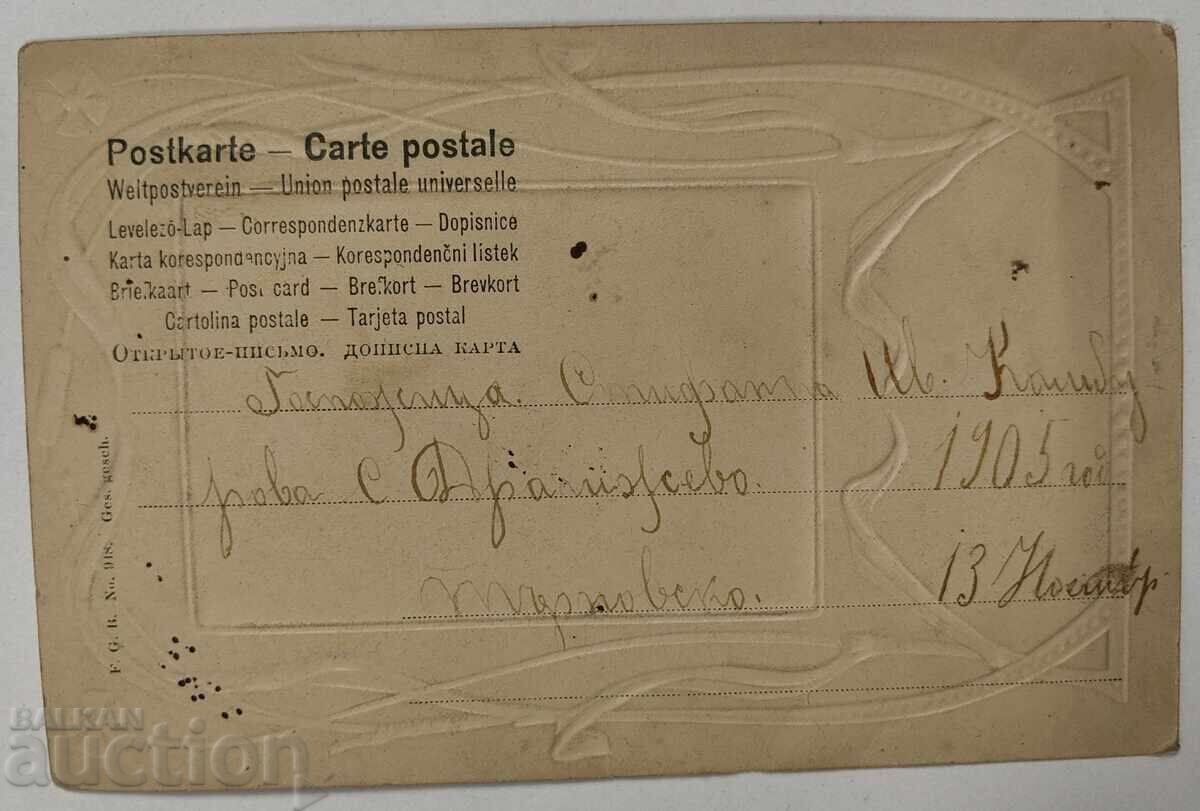 Postkarte — Carte postale
Weltpostverein — Union postale universelle
Levelező-Lap — Correspondenzkarte — Dopisnice
Karta korespondencyjna — Korespondenčni listek
Briefkaart — Post card — Brefkort — Brevkort
Cartolina postale — Tarjeta postal
Открытое-письмо. дописна карта
Госпожица. Ив.
рова С Драгижево. 1905 год
търновско. 13 Ноемвр
F. G. B. No. 918. Ges. gesch.
BALKAN
auction